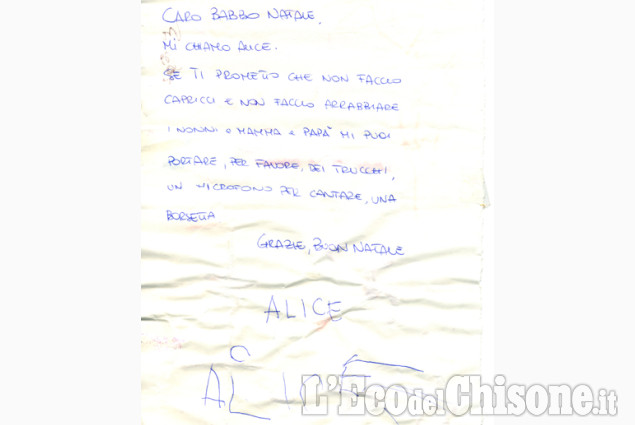 CARO BABBO NATALE,
MI CHIAMO ALICE.
SE TI PROMETTO CHE NON FACCIO
CAPRICCI E NON FACCIO ARRABBIARE
I NONNI O MAMMA E PAPÀ MI PUOI
PORTARE, PER FAVORE, DEI TRUCCHI,
UN MICROFONO PER CANTARE, UNA
BORSETTA
GRAZIE, BUON NATALE
ALICE
L'Eco del Chisone.it